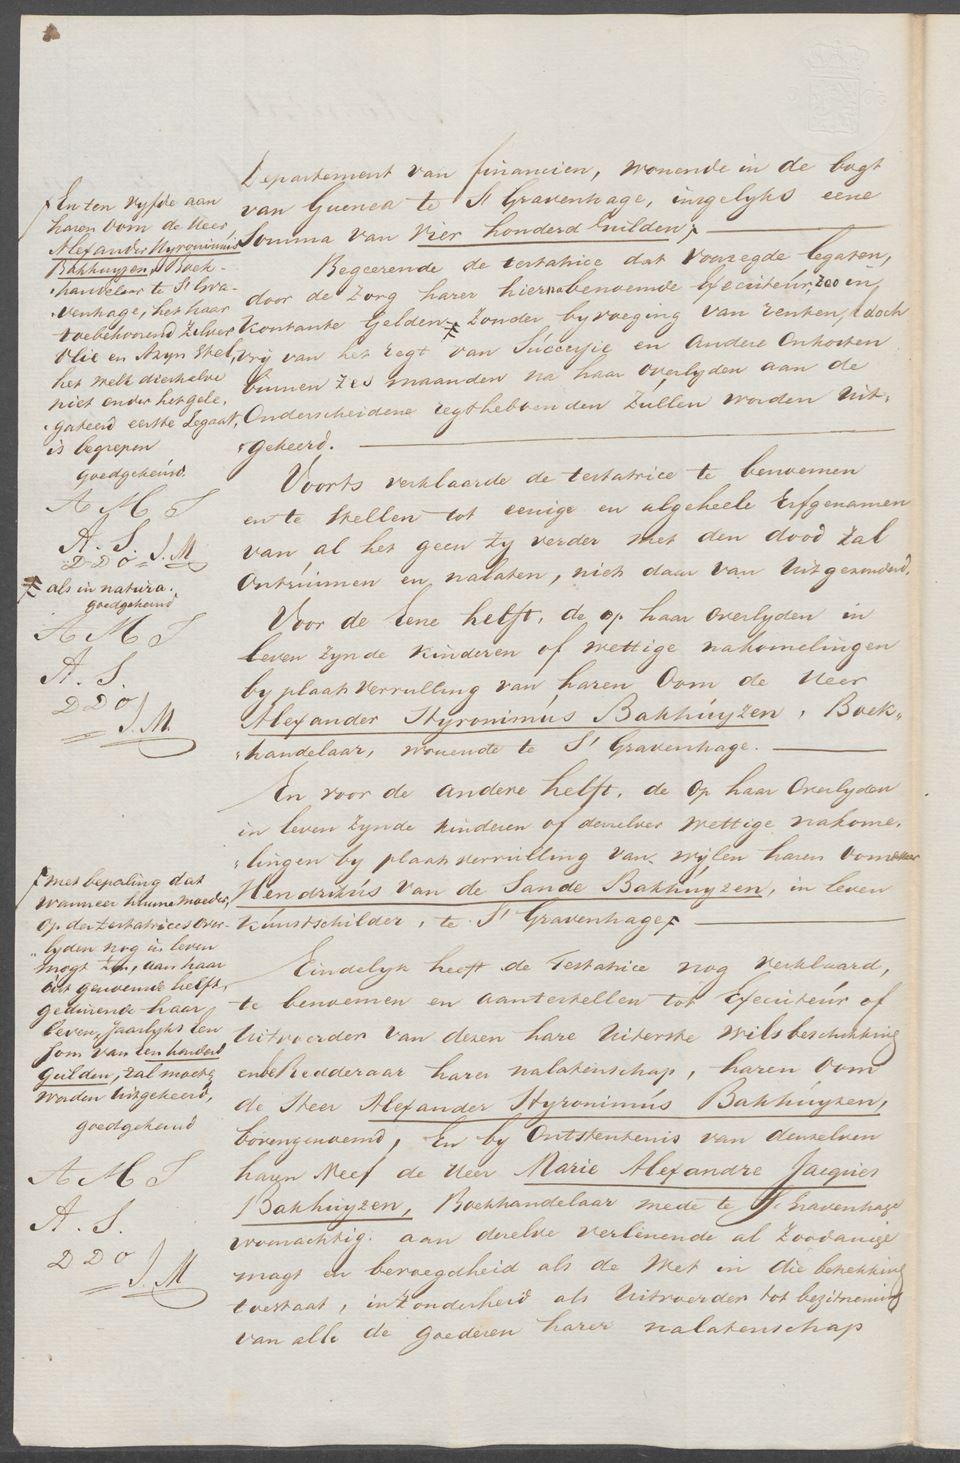 Departement van financien, wonende in de bogt
van Guenea te S' Gravenhage, insgelyks eene
Somma van Vier honderd Guilden,
Begeerende de testatrice dat voorzegde legaten,
door de zorg harer hiernabenoemde Executeur, zoo in
kontante Gelden zonder byvoeging van renten, doch
vry van het regt van Successie en andere Onkosten
binnen zes maanden na haar overlyden aan de
Onderscheidene regthebbenden zullen worden uit-
gekeerd.
Voorts verklaarde de testatrice te benoemen
en te stellen tot eenige en algeheele Erfgenamen
van al het geen zy verder met den dood zal
ontruimen en nalaten, niets daar van uitgezonderd.
Voor de Eene helft, de op haar overlyden in
leven zynde kinderen of wettige nakomelingen
by plaatsvervulling van haren Oom de Heer
Alexander Hyronimús Bakhúyzen, Boek-
handelaar, wonende te S' Gravenhage.
En voor de andere helft, de op haar Overlyden
in leven zynde kinderen of derzelver wettige nakome-
lingen by plaatsvervulling van wylen haren Oom de Heer
Hendrikús van de Sande Bakhuyzen, in leven
kunstschilder, te S' Gravenhage
Eindelyk heeft de Testatrice nog verklaard,
te benoemen en aantestellen tot Executeúr of
Uitvoerder van dezen hare Uiterste wilsbeschikking
en beredderaar harer nalatenschap, haren Oom
de Heer Alexander Hyronimús Bakhúyzen,
bovengenoemd, En by Ontstentenis van denzelven
haren Neef de Heer Marie Alexandre Jacques
Bakhuyzen, Boekhandelaar mede te S' Gravenhage
woonachtig. aan dezelve verleenende al zoodanige
magt en bevoegdheid als de Wet in die betrekking
toestaat, inzonderheid als Uitvoerder tot bezitneming
van alle de goederen harer nalatenschap
En ten vyfde aan
haren Oom de Heer
Alexander Hyronimús
Bakhuyzen, Boek-
handelaar te S' Gra-
venhage, het haar
toebehoorend Zilver
Olie en Azyn Stel,
het welk dierhalve
niet onder het gele-
gateerd eerste Legaat,
is begrepen
goedgekeurd.
A M S
A. S.
D D O. J. M
als in natura.
goedgekeurd
A M S
A. S.
D D O
J. M.
met bepaling dat
wanneer hunne moeder,
op der testatrices Over-
lyden nog in leven
mogt zyn, aan haar
uit genoemde helft,
gedurende haar
leven, jaarlyks een
som van een honderd
Gulden, zal moeten
worden uitgekeerd,
goedgekeurd
A M S
A. S.
D D O
J. M